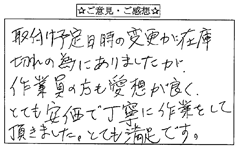 ☆ご意見・ご感想☆
取付け予定日時の変更が在庫
切れの為にありましたが、
作業員の方も愛想が良く、
とても安価で丁寧に作業をして
頂きました。とても満足です。